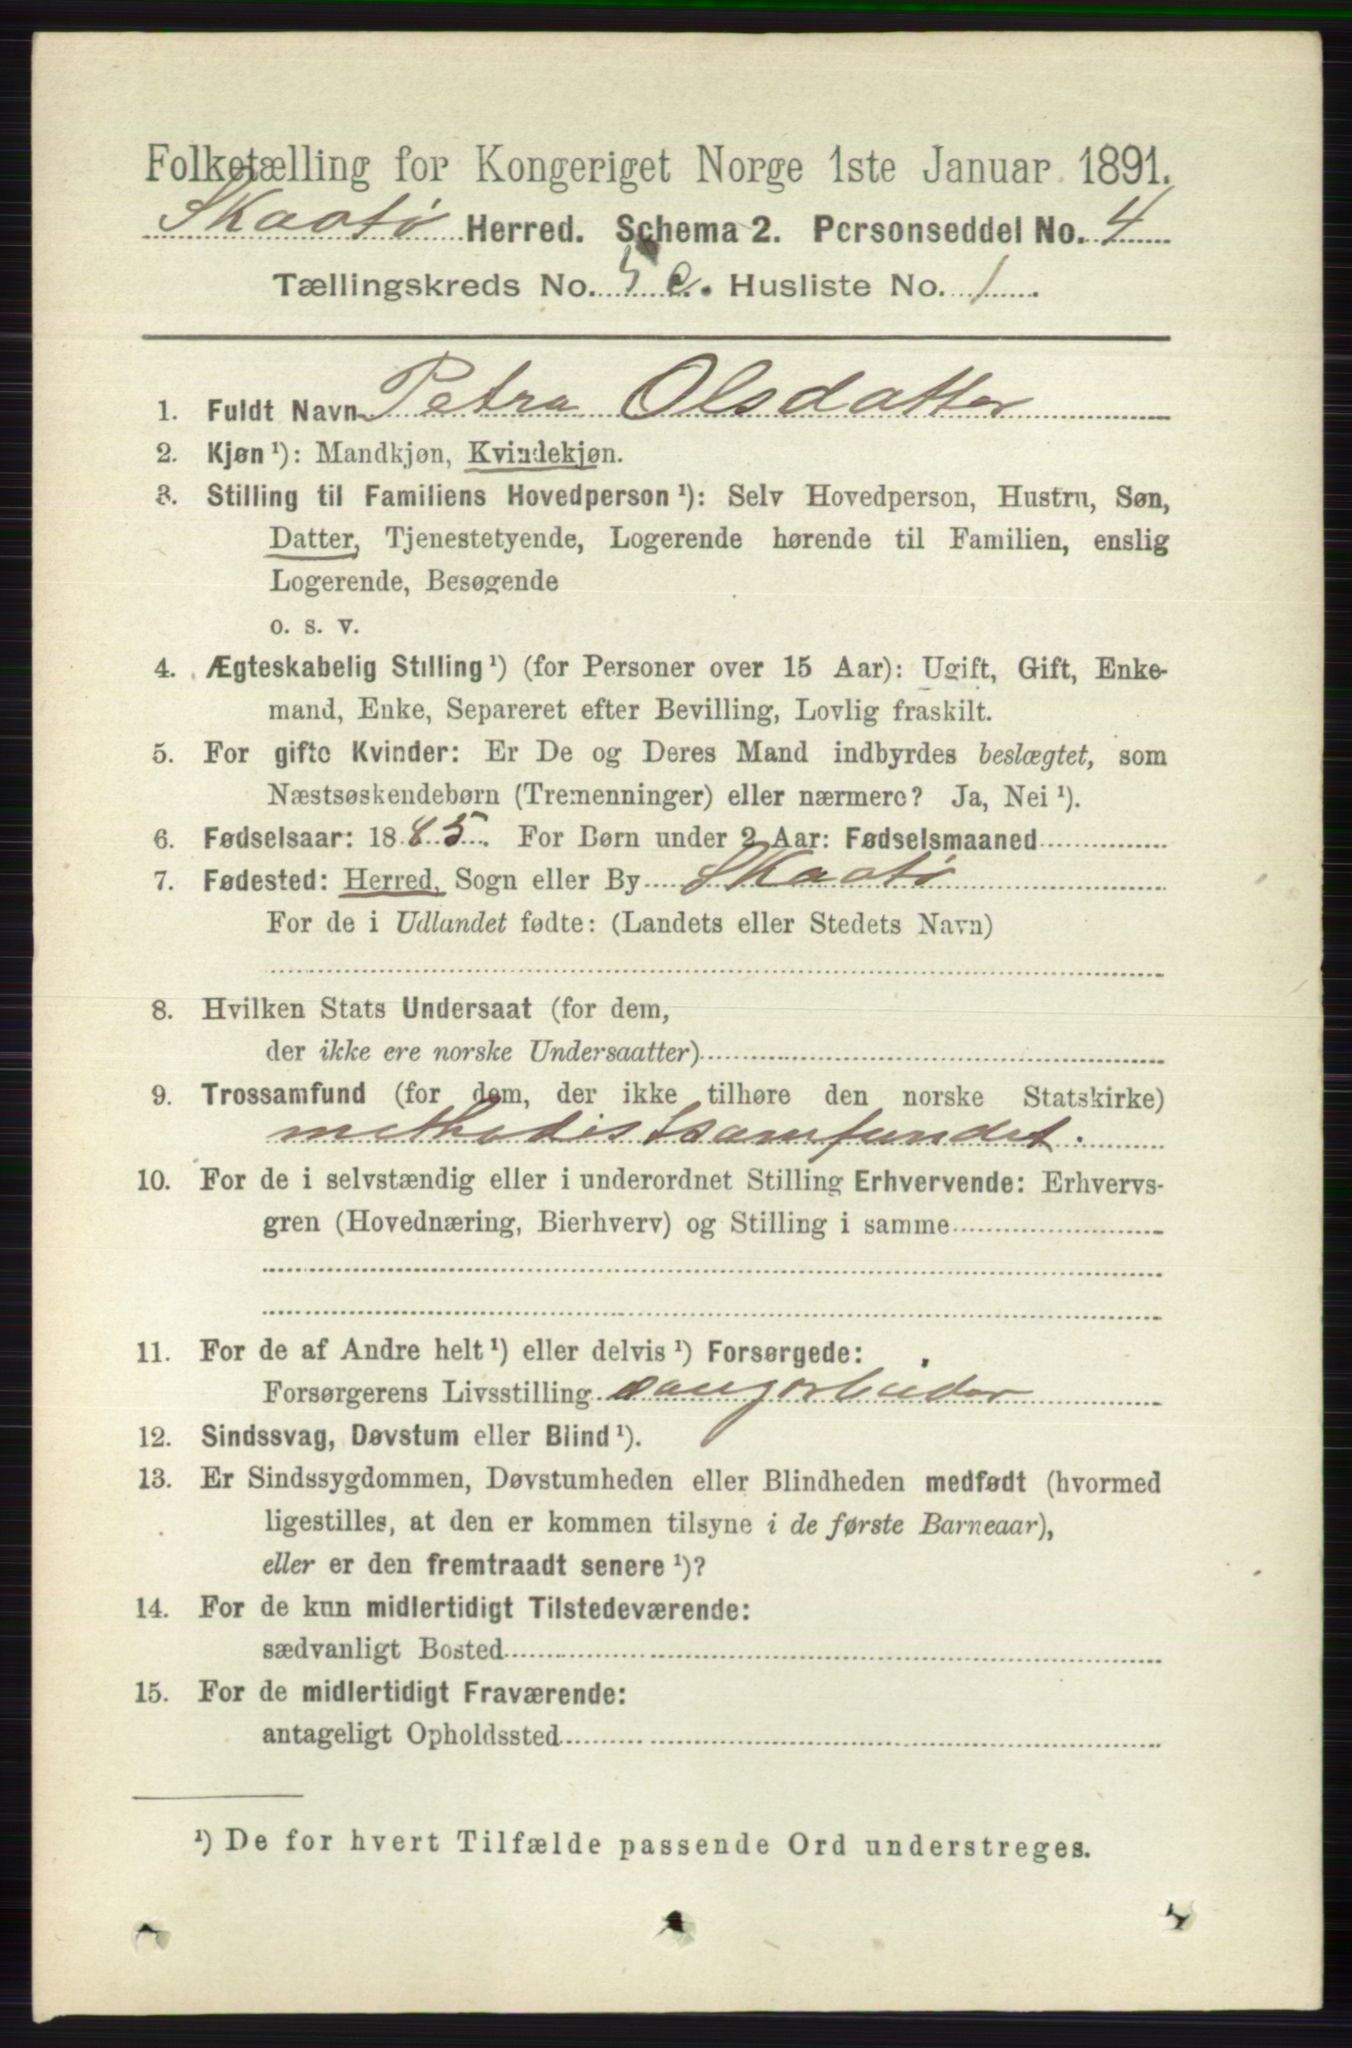 Folketælling for Kongeriget Norge 1ste Januar 1891.
Skaatø Herred. Schema 2. Personseddel No. 4
Tællingskreds No. 5 c. Husliste No. 1.
1. Fuldt Navn Petra Olsdatter
2. Kjøn ¹): Mandkjøn, Kvindekjøn.
3. Stilling til Familiens Hovedperson ¹): Selv Hovedperson, Hustru, Søn,
Datter, Tjenestetyende, Logerende hørende til Familien, enslig
Logerende, Besøgende
o. s. v.
4. Ægteskabelig Stilling ¹) (for Personer over 15 Aar): Ugift, Gift, Enke-
mand, Enke, Separeret efter Bevilling, Lovlig fraskilt.
5. For gifte Kvinder: Er De og Deres Mand indbyrdes beslægtet, som
Næstsøskendebørn (Tremenninger) eller nærmere? Ja, Nei ¹).
6. Fødselsaar: 1885. For Børn under 2 Aar: Fødselsmaaned
7. Fødested: Herred, Sogn eller By Skaatø
For de i Udlandet fødte: (Landets eller Stedets Navn)
8. Hvilken Stats Undersaat (for dem,
der ikke ere norske Undersaatter)
9. Trossamfund (for dem, der ikke tilhøre den norske Statskirke)
methodistsamfundet.
10. For de i selvstændig eller i underordnet Stilling Erhvervende: Erhvervs-
gren (Hovednæring, Bierhverv) og Stilling i samme
11. For de af Andre helt ¹) eller delvis ¹) Forsørgede:
Forsørgerens Livsstilling saugarbeider
12. Sindssvag, Døvstum eller Blind ¹).
13. Er Sindssygdommen, Døvstumheden eller Blindheden medfødt (hvormed
ligestilles, at den er kommen tilsyne i de første Barneaar),
eller er den fremtraadt senere ¹)?
14. For de kun midlertidigt Tilstedeværende:
sædvanligt Bosted
15. For de midlertidigt Fraværende:
antageligt Opholdssted
¹) De for hvert Tilfælde passende Ord understreges.